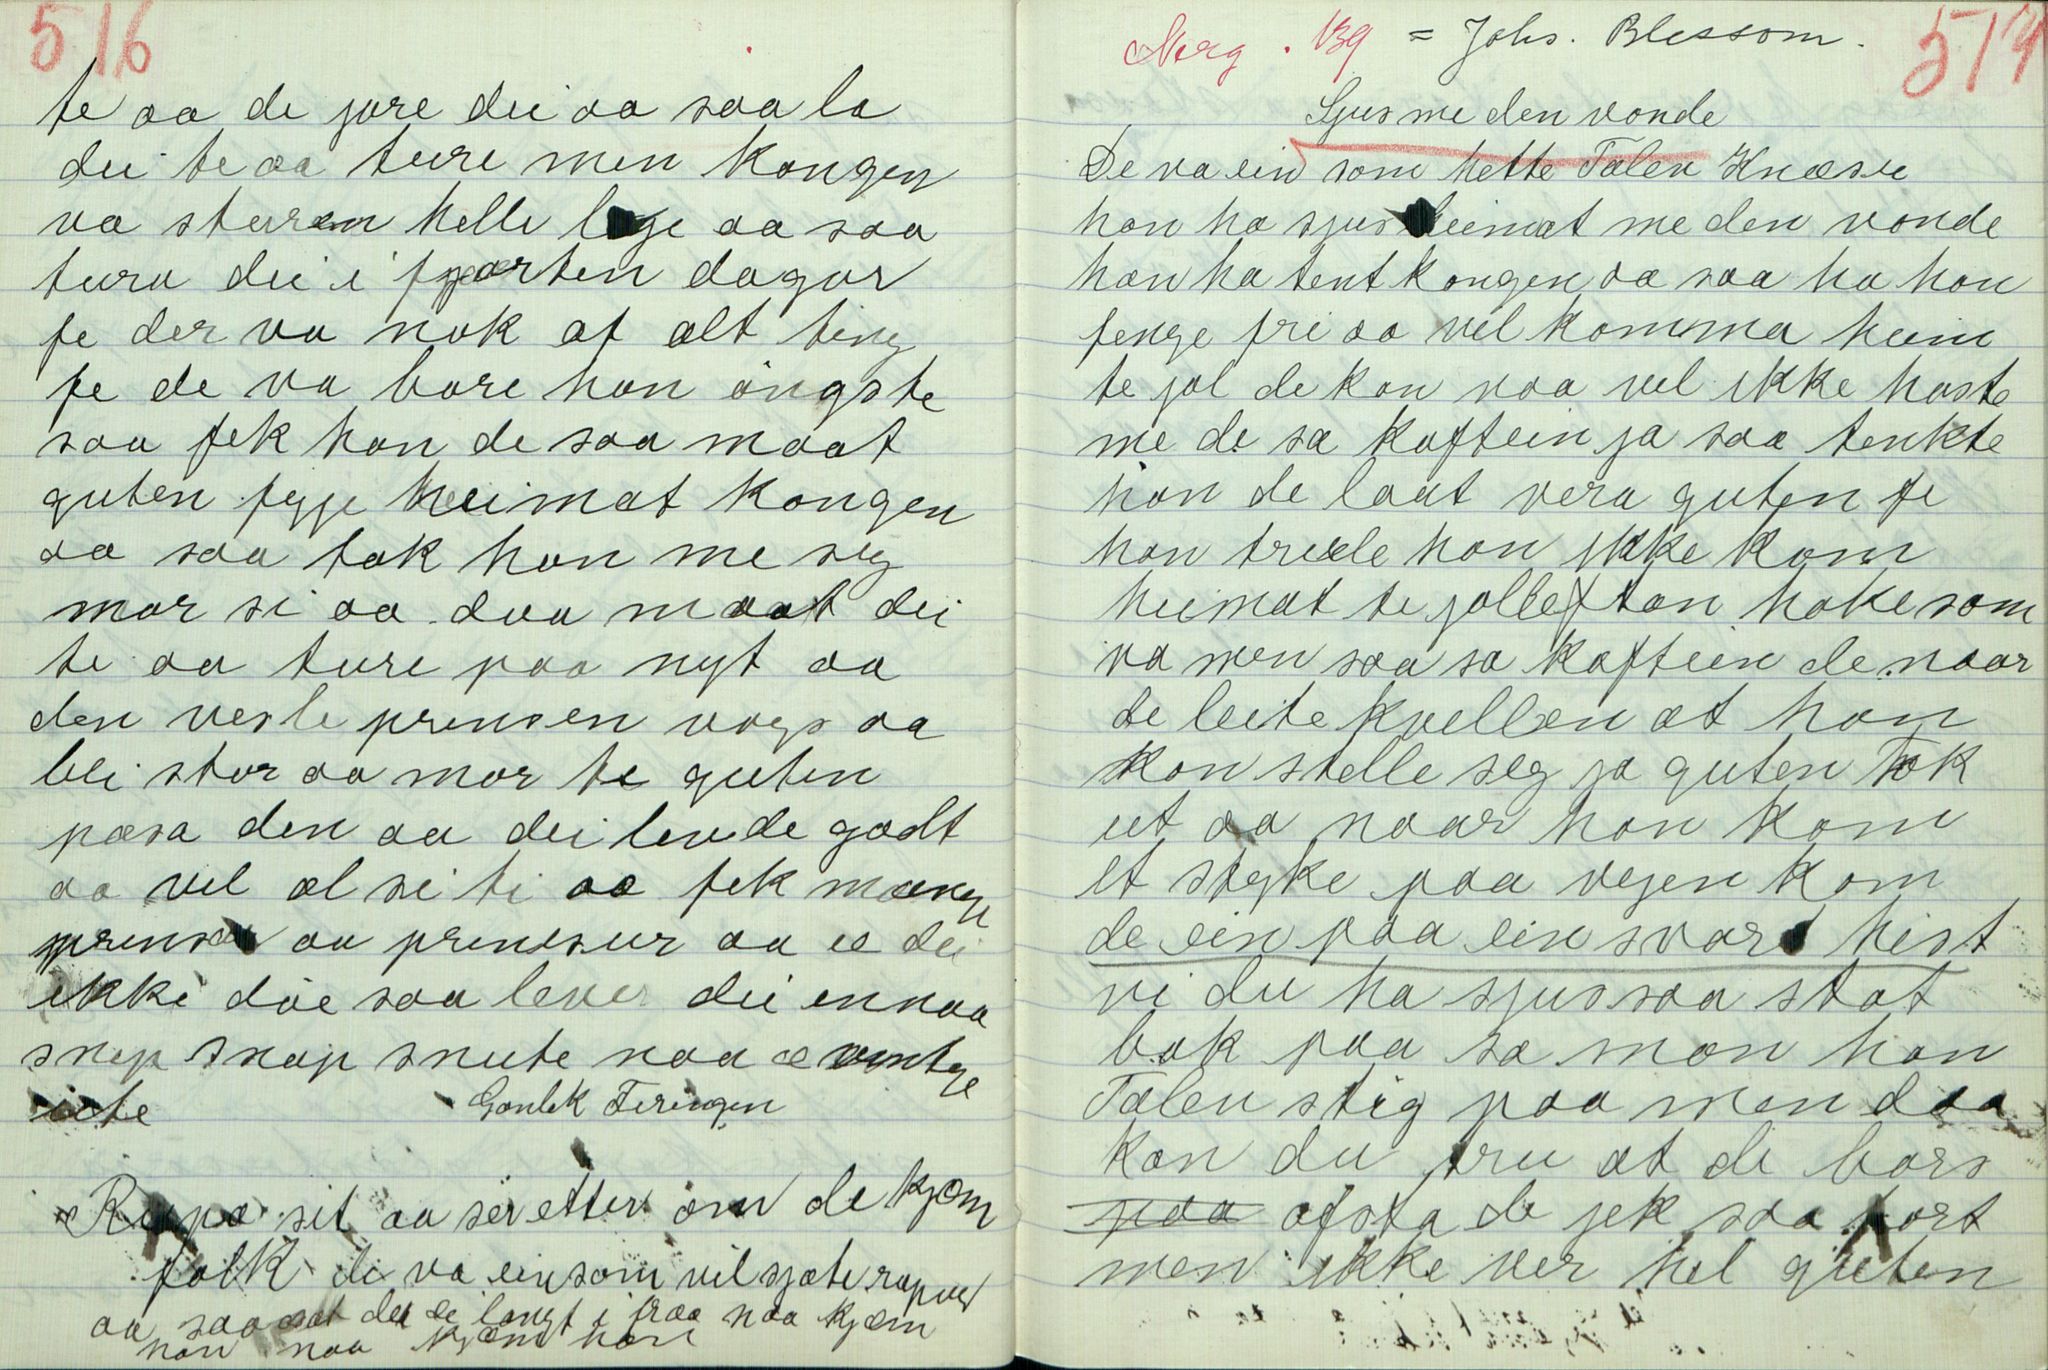 516
te aa de jore dei aa saa la
dei te aa ture men kongen
va sturen helle lgje aa saa
tura dei i fjorten dagar
fe der va nok af alt ting
fe de va bare han öngste
saa fek han de saa maat
guten fyje heimat kongen
aa saa tok han me seg
mor si aa daa maat dei
te aa ture paa nyt aa
den vesle prinsen voqs aa
blei stor aa mor te guten
pasa den aa dei levde godt
aa vel al si ti aa fek mange
prinsar aa prinsesur aa æ dei
ikke döe saa lever dei ennaa
snip snap snute naa æ æventye
ute
Gonlek Teringen
Rupa sit aa ser etter om de kjöm
folk de va ein som vil sjote rupur
aa saa sat dei de langt i fraa naa kjæm
han naa kjæm han
517
Norg . 139 = Johs. Blessom.
Sjus me den vonde
De va ein som hette Talen Knæsie
han ha sjus heimat me den vonde
han ha tent kongen aa saa ha han
fenge fri aa vil komma heim
te jol de kan naa vel ikke haste
me de sa kaftein ja saa tenkte
han de laat vera guten fe
han trude han ikke kom
heimat te jolleftan hoke som
va men saa sa kaftein de naar
de leite kvellen at han
kan stelle seg ja guten Tok
ut aa naar han kom
et styke paa vejen kom
de ein paa ein svart hest
vi du ha sjus saa stat
bak paa sa mon han
Talen stig paa men daa
kan du tru at de bars
paa afsta de jek saa fort
men ikke ver hel guten